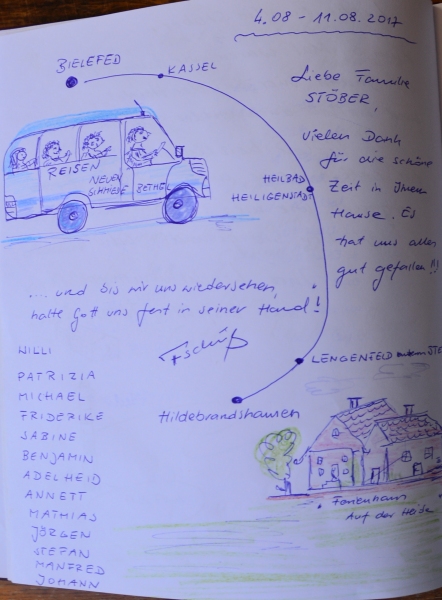 4.08 - 11.08.2017
BIELEFED
KASSEL
Liebe Familie
STÖBER,
vielen Dank
für die schöne
Zeit in Ihrem
Hause. Es
hat uns allen
gut gefallen!!!
REISEN
NEUE
SCHMIEDE BETHEL
HEILBAD
HEILIGENSTADT
.... und bis wir uns wiedersehen,
halte Gott uns fest in seiner Hand!
LENGENFELD
Hildebrandshausen
WILLI
PATRIZIA
MICHAEL
FRIDERIKE
SABINE
BENJAMIN
ADELHEID
ANNETT
MATHIAS
JÖRGEN
STEFAN
MANFRED
JOHANN
Ferienhaus
Auf der Heide